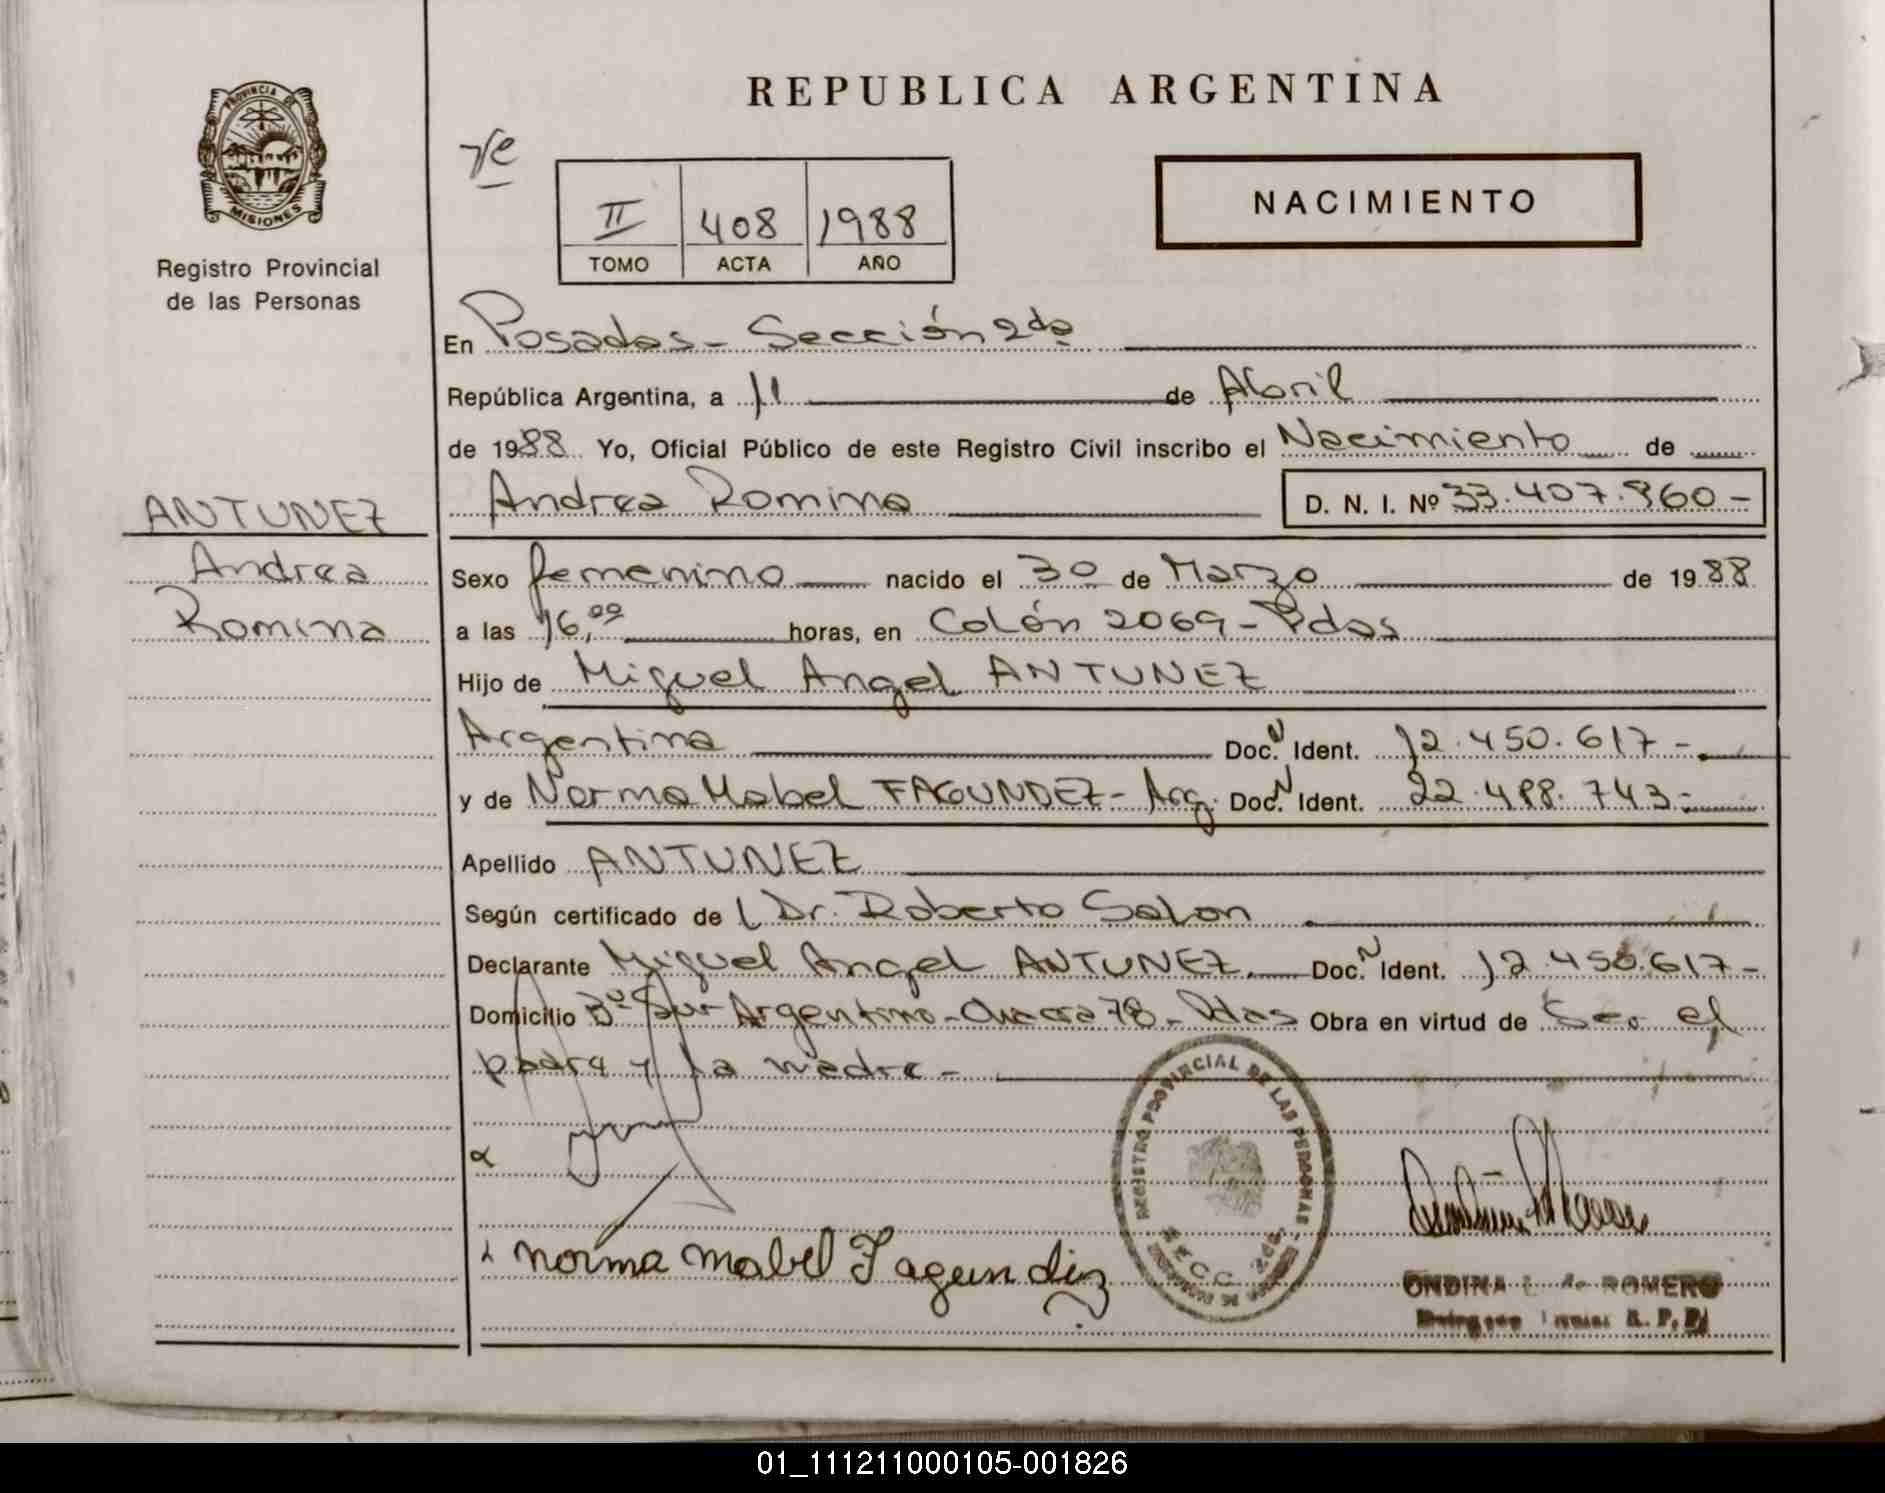 REPUBLICA ARGENTINA
PROVINCIA DE
MISIONES
Registro Provincial
de las Personas
II 408 1988
TOMO ACTA AÑO
NACIMIENTO
En Posadas - Sección 2da
República Argentina, a 11 de Abril
de 1988 Yo, Oficial Público de este Registro Civil inscribo el Nacimiento de
Andrea Romina D. N. I. Nº 33.407.960 -
ANTUNEZ
Andrea
Romina
Sexo femenino nacido el 30 de Marzo de 1988
a las 16,00 horas, en Colón 2069 - Pdas
Hijo de Miguel Angel ANTUNEZ
Argentina Doc. N Ident. 12.450.617 -
y de Norma Mabel FAGUNDEZ - Arg. Doc. N Ident. 22.488.743 -
Apellido ANTUNEZ
Según certificado de Dr. Roberto Salon
Declarante Miguel Angel ANTUNEZ Doc. N Ident. 12.450.617 -
Domicilio Bº Sur Argentino - Chacra 78 - Pdas Obra en virtud de Ser el
padre y la madre -
REGISTRO PROVINCIAL DE LAS PERSONAS
SECC. 2da.
norma mabel Fagundez
ONDINA L. de ROMERO
R. P. P.
01_111211000105-001826